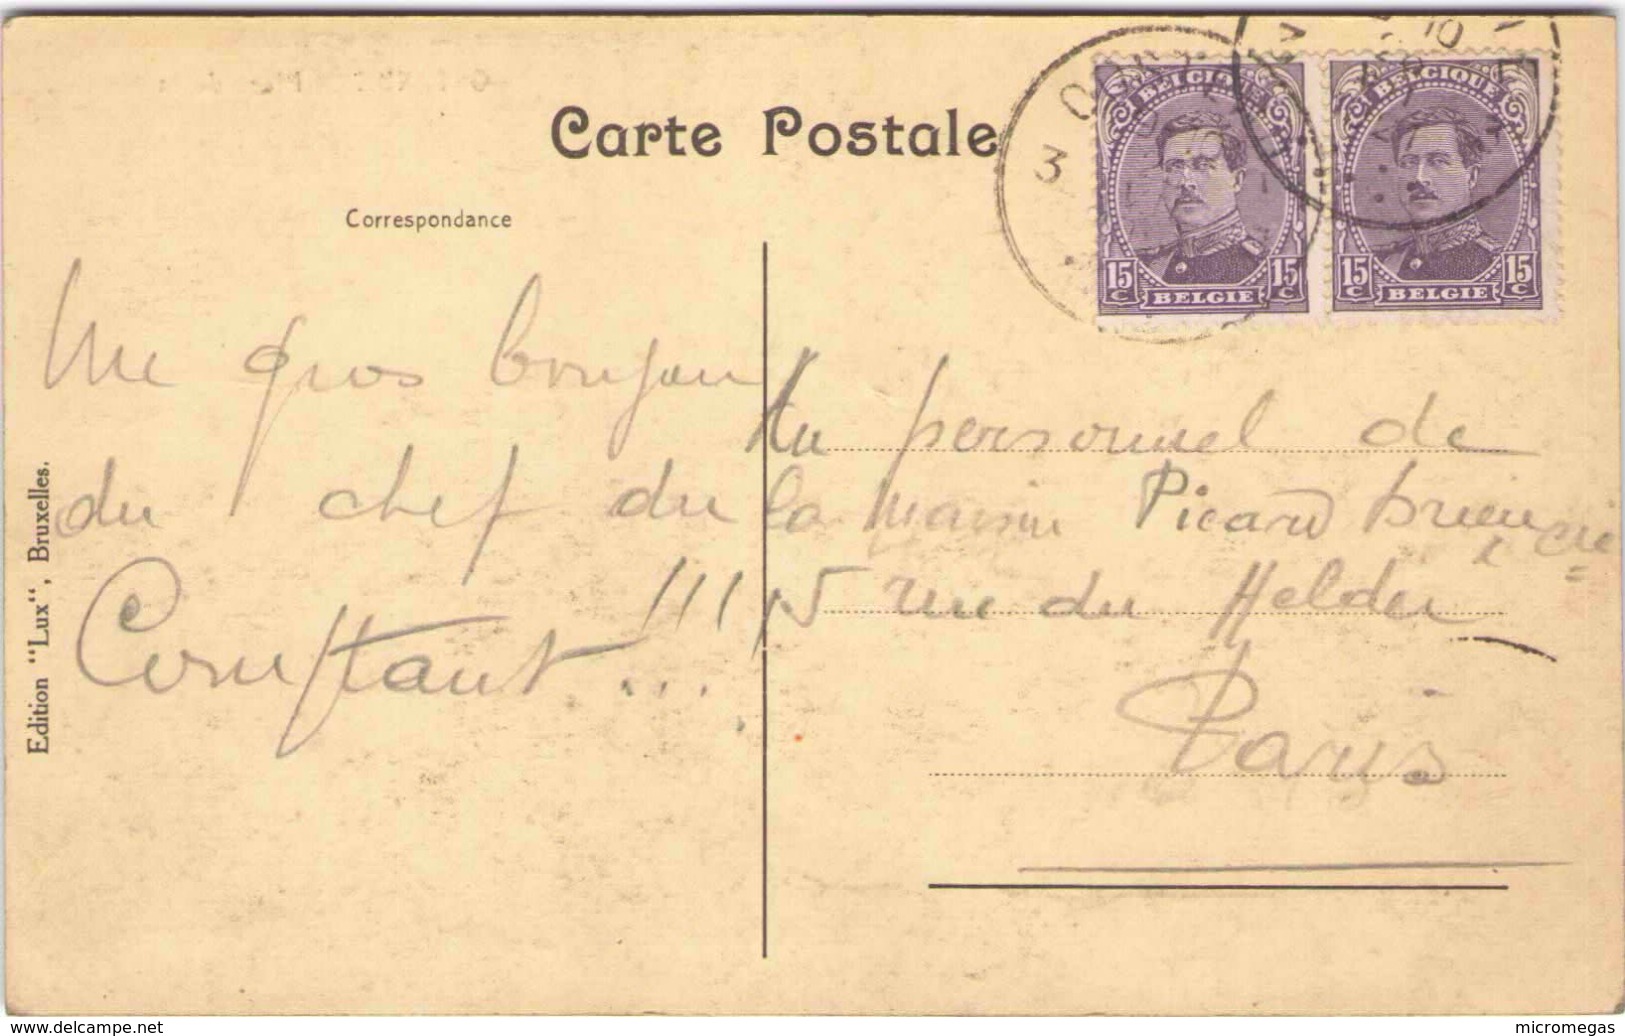 Carte Postale
Correspondance
BELGIQUE
15 c 15 c
BELGIE
BELGIQUE
15 c 15 c
BELGIE
3
Une gros bonjour
du chef du
Constant !!!
Au personnel de
la maison Picard
& Cie
15 rue du Helder
Paris
Edition “Lux“, Bruxelles.
www.delcampe.net
micromegas